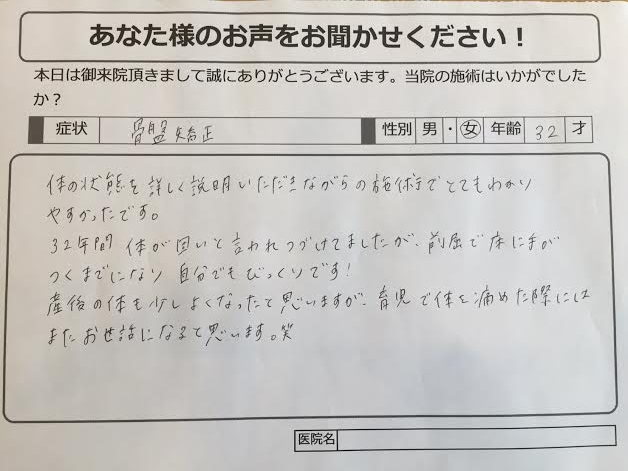 あなた様のお声をお聞かせください！
本日は御来院頂きまして誠にありがとうございます。当院の施術はいかがでした
か？
症状 骨盤矯正 性別 男・女 年齢 32 才
体の状態を詳しく説明いただきながらの施術でとてもわかり
やすかったです。
32年間 体が固いと言われつづけてましたが、前屈で床に手が
つくまでになり 自分でもびっくりです！
産後の体も少しよくなったと思いますが、育児で体を痛めた際には
またお世話になると思います。笑
医院名